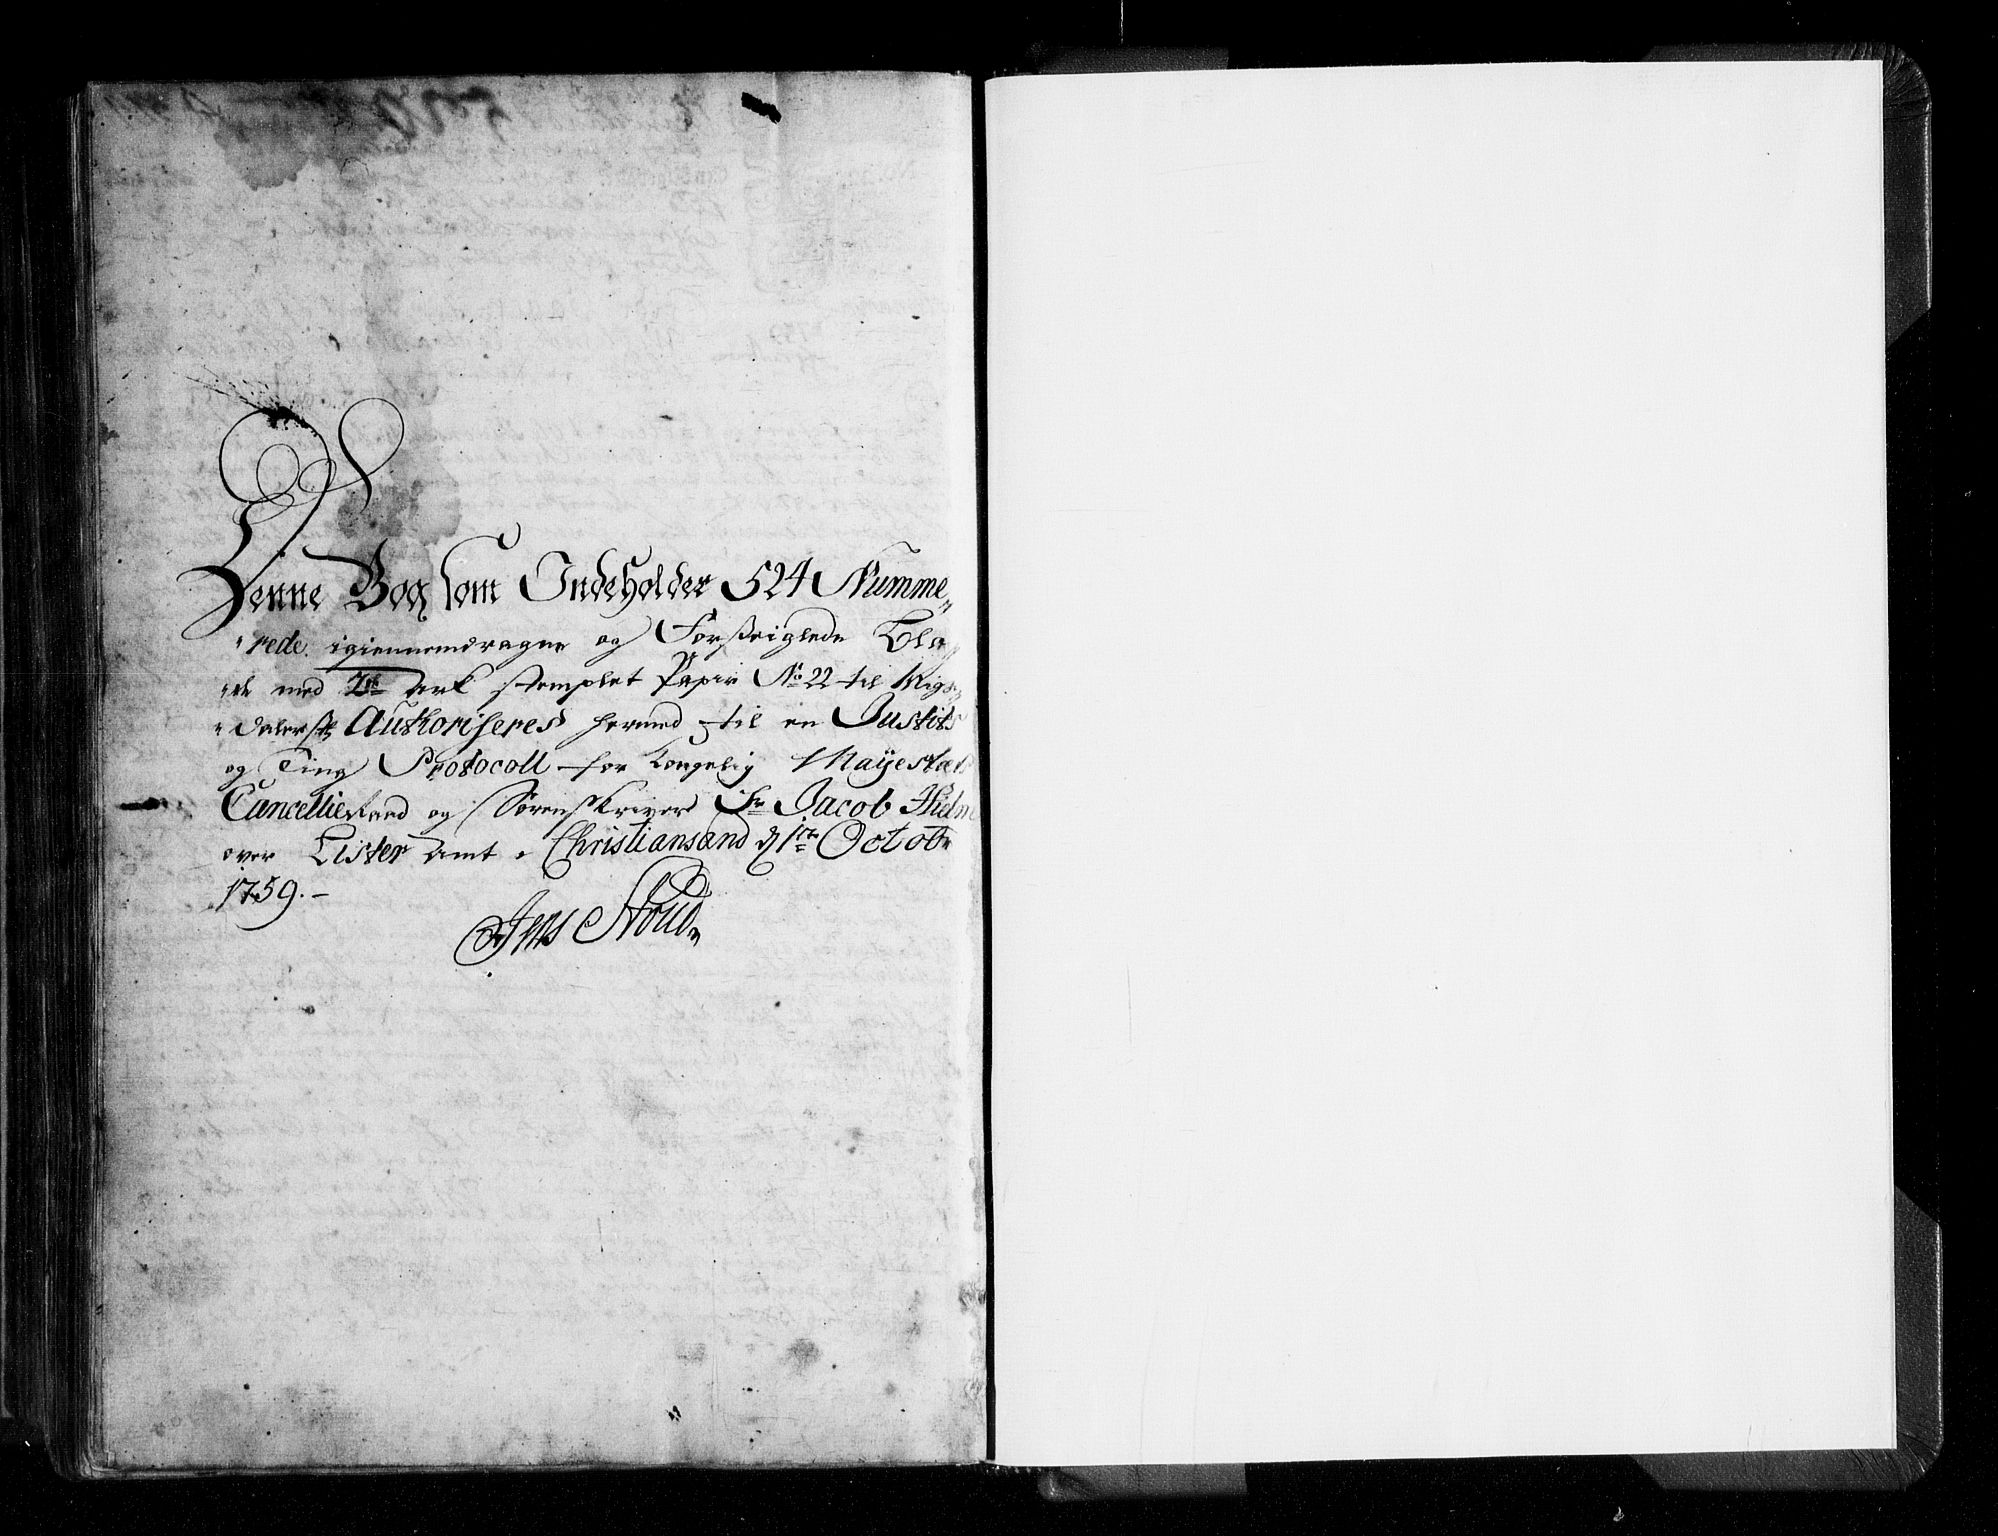 Denne Bog som Indeholder 524 Numme-
rede igiennemdragne og Forseiglede Bla-
de med ark stemplet Papir No 22 til Rigs
daler Authoriseres hermed til en Justits
og Ting Protocoll for Kongelig Mayestæts
Cancellie Raad og Sørenskriver Hr Jacob Hielm
over Lister Amt. Christiansand d 1te Octobr
1759.
Jens